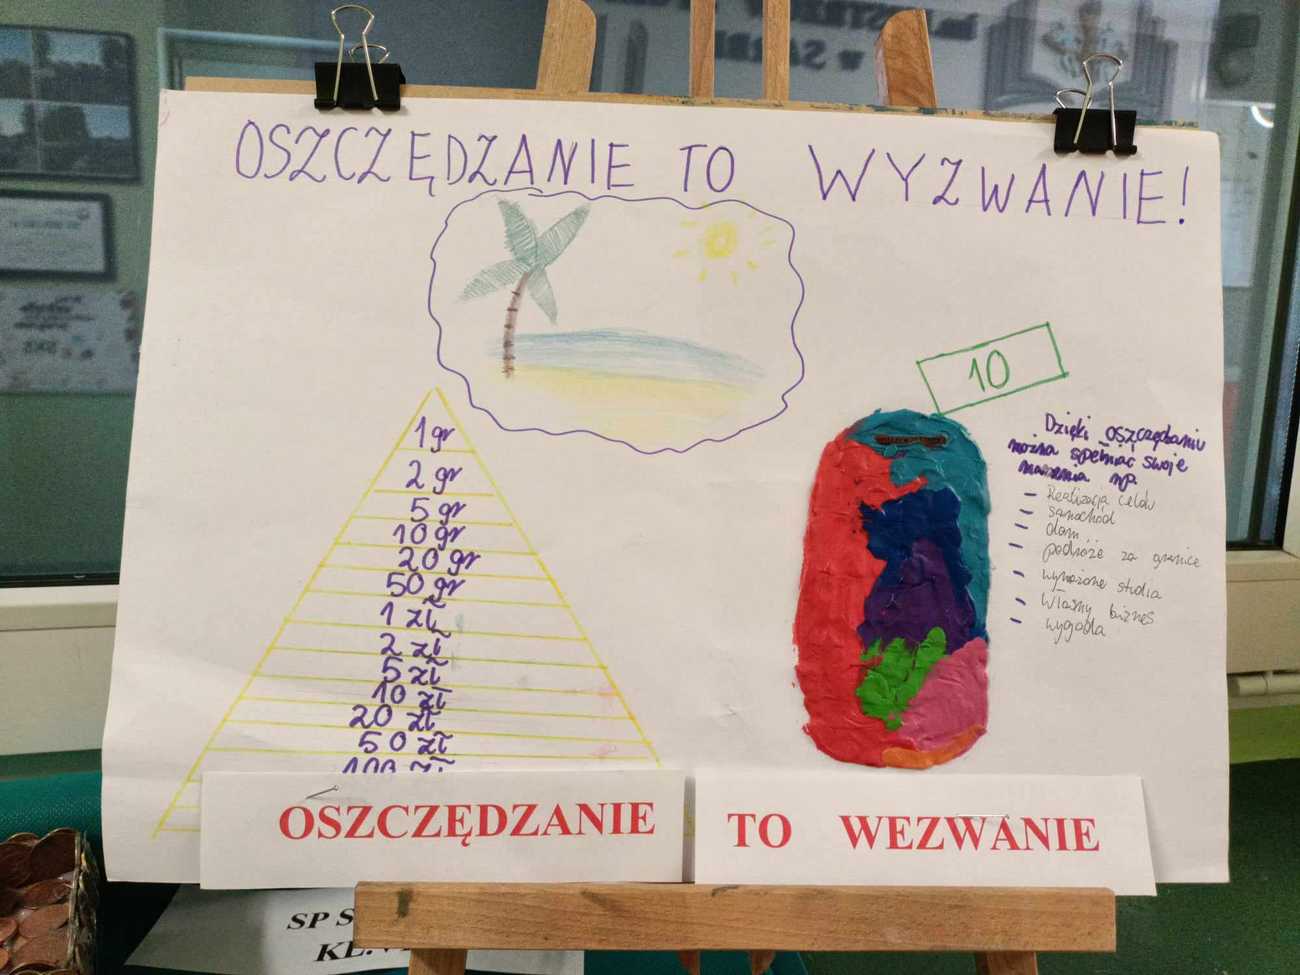 OSZCZĘDZANIE TO WYZWANIE!
10
1 gr
2 gr
5 gr
10 gr
20 gr
50 gr
1 zł
2 zł
5 zł
10 zł
20 zł
50 zł
100 zł
Dzięki oszczędzaniu
można spełniać swoje
marzenia np
- Realizacja celów
- samochód
- dom
- podróże za granice
- wymarzone studia
- Własny biznes
- wygoda
OSZCZĘDZANIE TO WEZWANIE
SP
KL.